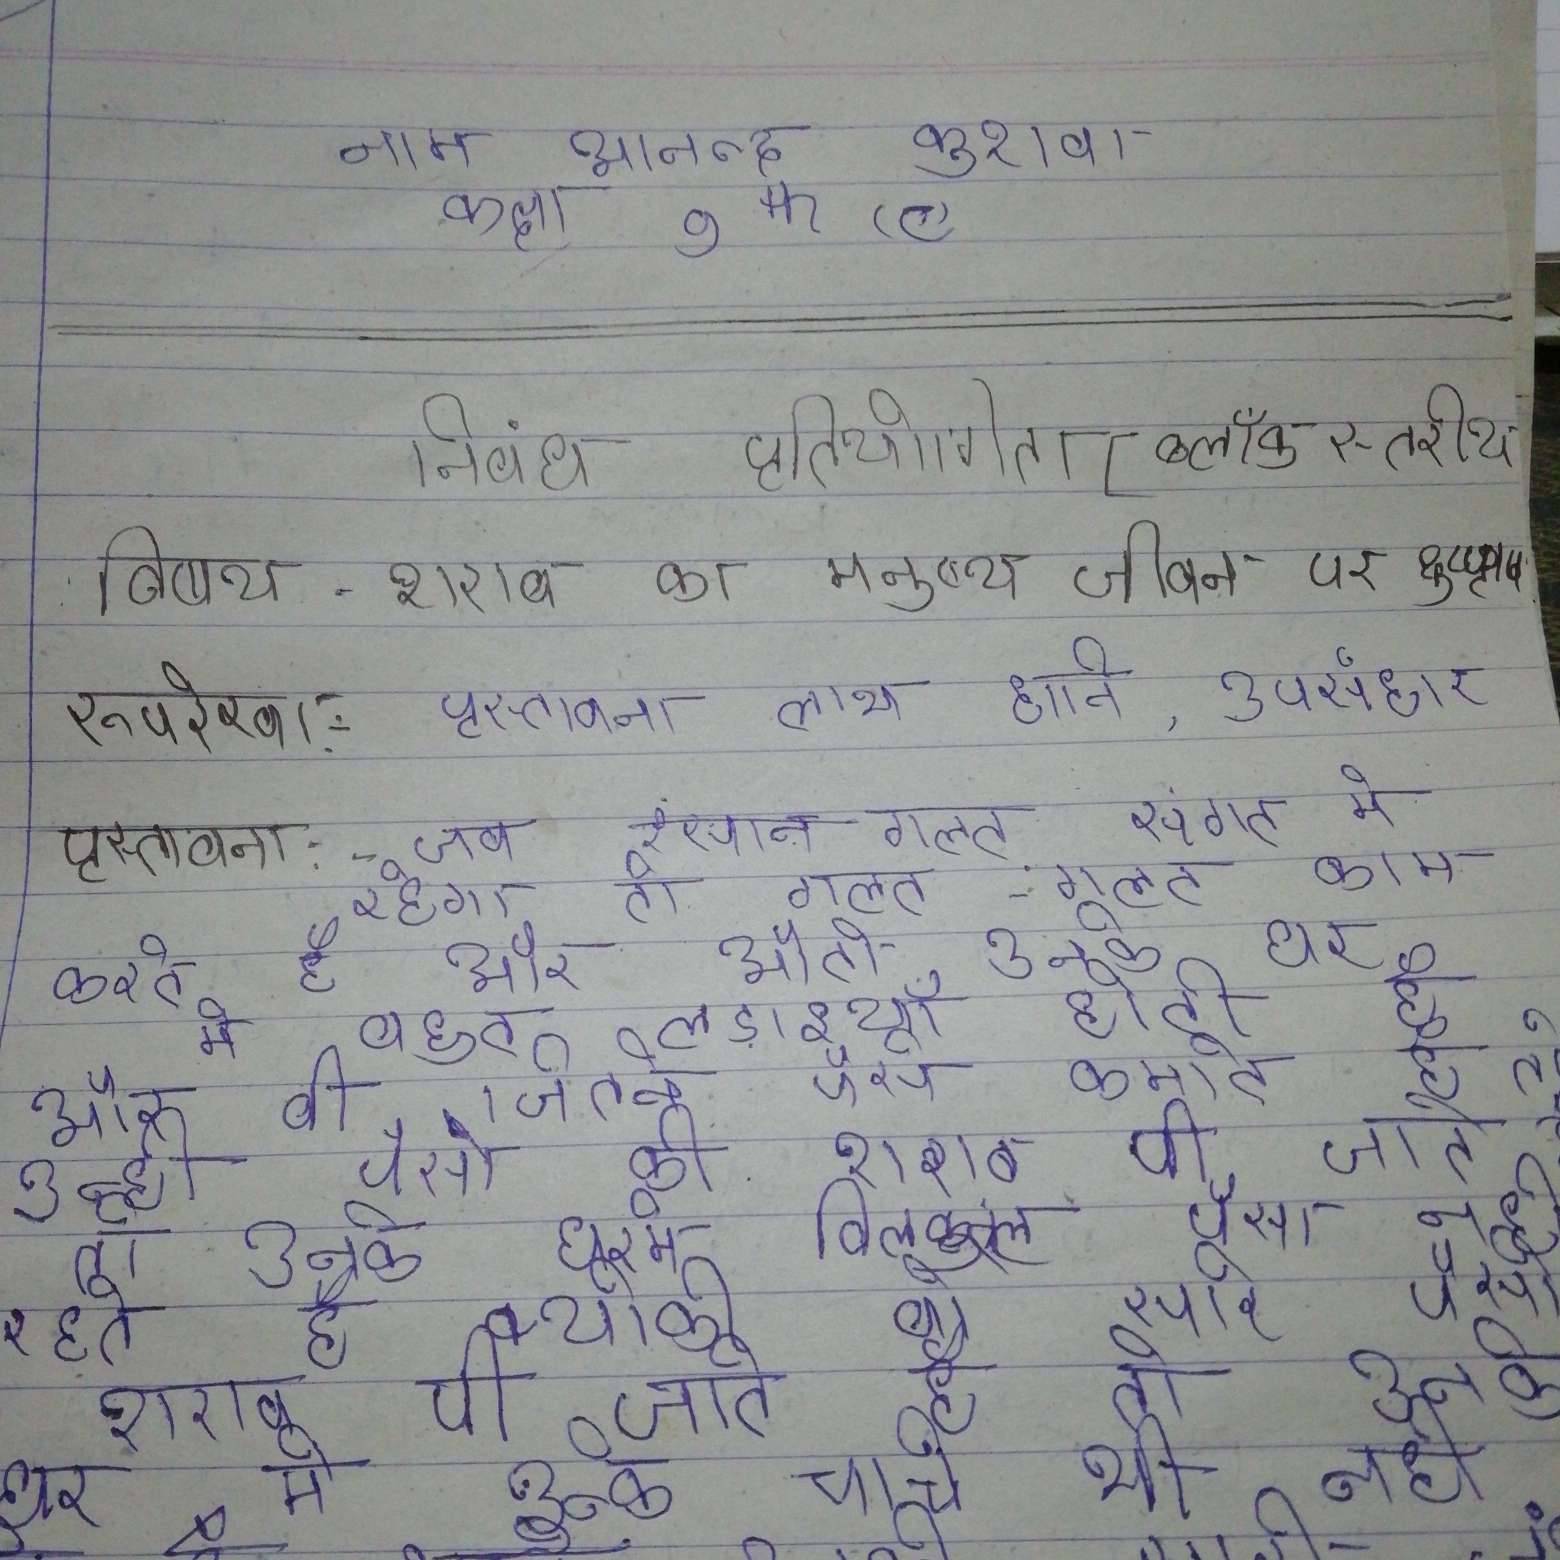 नाम आनन्द कुशवा
कक्षा 9
निबंध प्रतियोगिता [ ब्लॉक स्तरीय
विषय - शराब का मनुष्य जीवन पर
रूपरेखा:- प्रस्तावना लाभ हानि, उपसंहार
प्रस्तावना:- जब इंसान गलत संगत मे
रहेगा तो गलत - गलत काम
करते है और उनके घर
मे बहुत लड़ाइयाँ होती है
और वो जितने पैसे कमाते है तो
उन्ही पैसो की शराब पी जाते
तो उनके घरमे बिलकुल पैसा नही
रहते है क्योकी वो सारे पैसो
शराब पी जाते है तो उनके
घर मे उनके भी नही